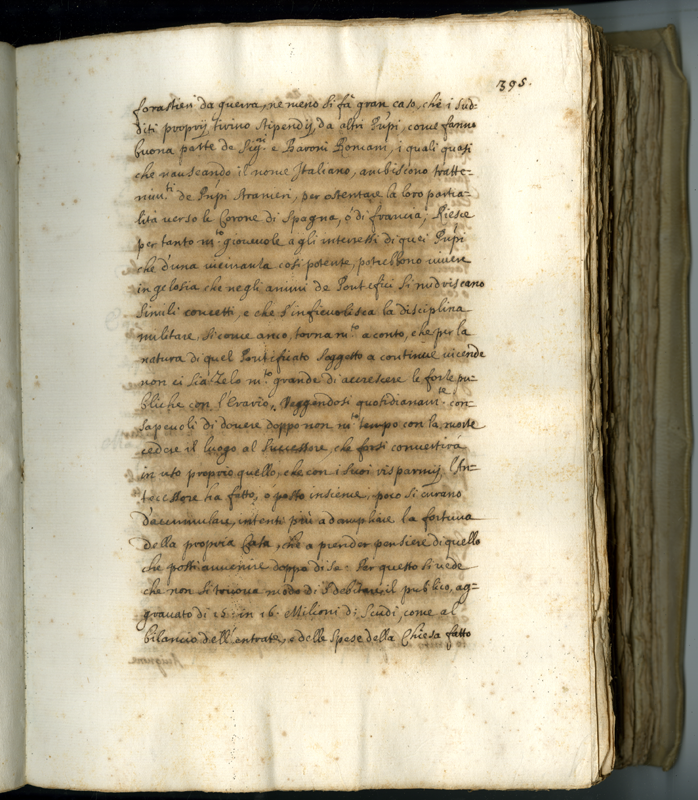 395.
forastieri da guerra, ne meno si fà gran caso, che i sud-
diti proprij tirino stipendij, da altri Prñpi, come fanno
buona parte de Sig.ri e Baroni Romani, i quali quasi
che nauseando il nome Italiano, ambiscono tratte-
nim.ti de Prñpi stranieri, per ostentare la loro partia-
lità verso le Corone di Spagna, ò di francia; Riesce
per tanto m.to gioueuole a gli interessi di quei Prñpi
che d'una vicinanza così potente, potrebbono viuere
in gelosia che negli animi de Pontefici si nudriscano
simili concetti, e che s'infieuolisca la disciplina
militare, si come anco, torna m.to a conto, che per la
natura di quel Pontificato soggetto a continue vicende
non ci sia zelo m.to grande di accrescere le forze pu-
bliche con l'Erario, Veggendosi quotidianam.te con-
sapeuoli di douere doppo non m.to tempo con la morte
cedere il luogo al Successore, che forsi conuertirà
in uso proprio quello, che con i suoi risparmij l'An-
tecessore ha fatto, o posto insieme, poco si curano
d'accumulare, intenti più ad ampliare la fortuna
della propria Casa, che a prender pensiere di quello
che possi auuenire doppo di se. Per questo si vede
che non si truoua modo di sdebitare il publico, ag-
grauato di 15: in 16. Milioni di Scudi, come al
bilancio dell'entrate, e delle Spese della Chiesa fatto